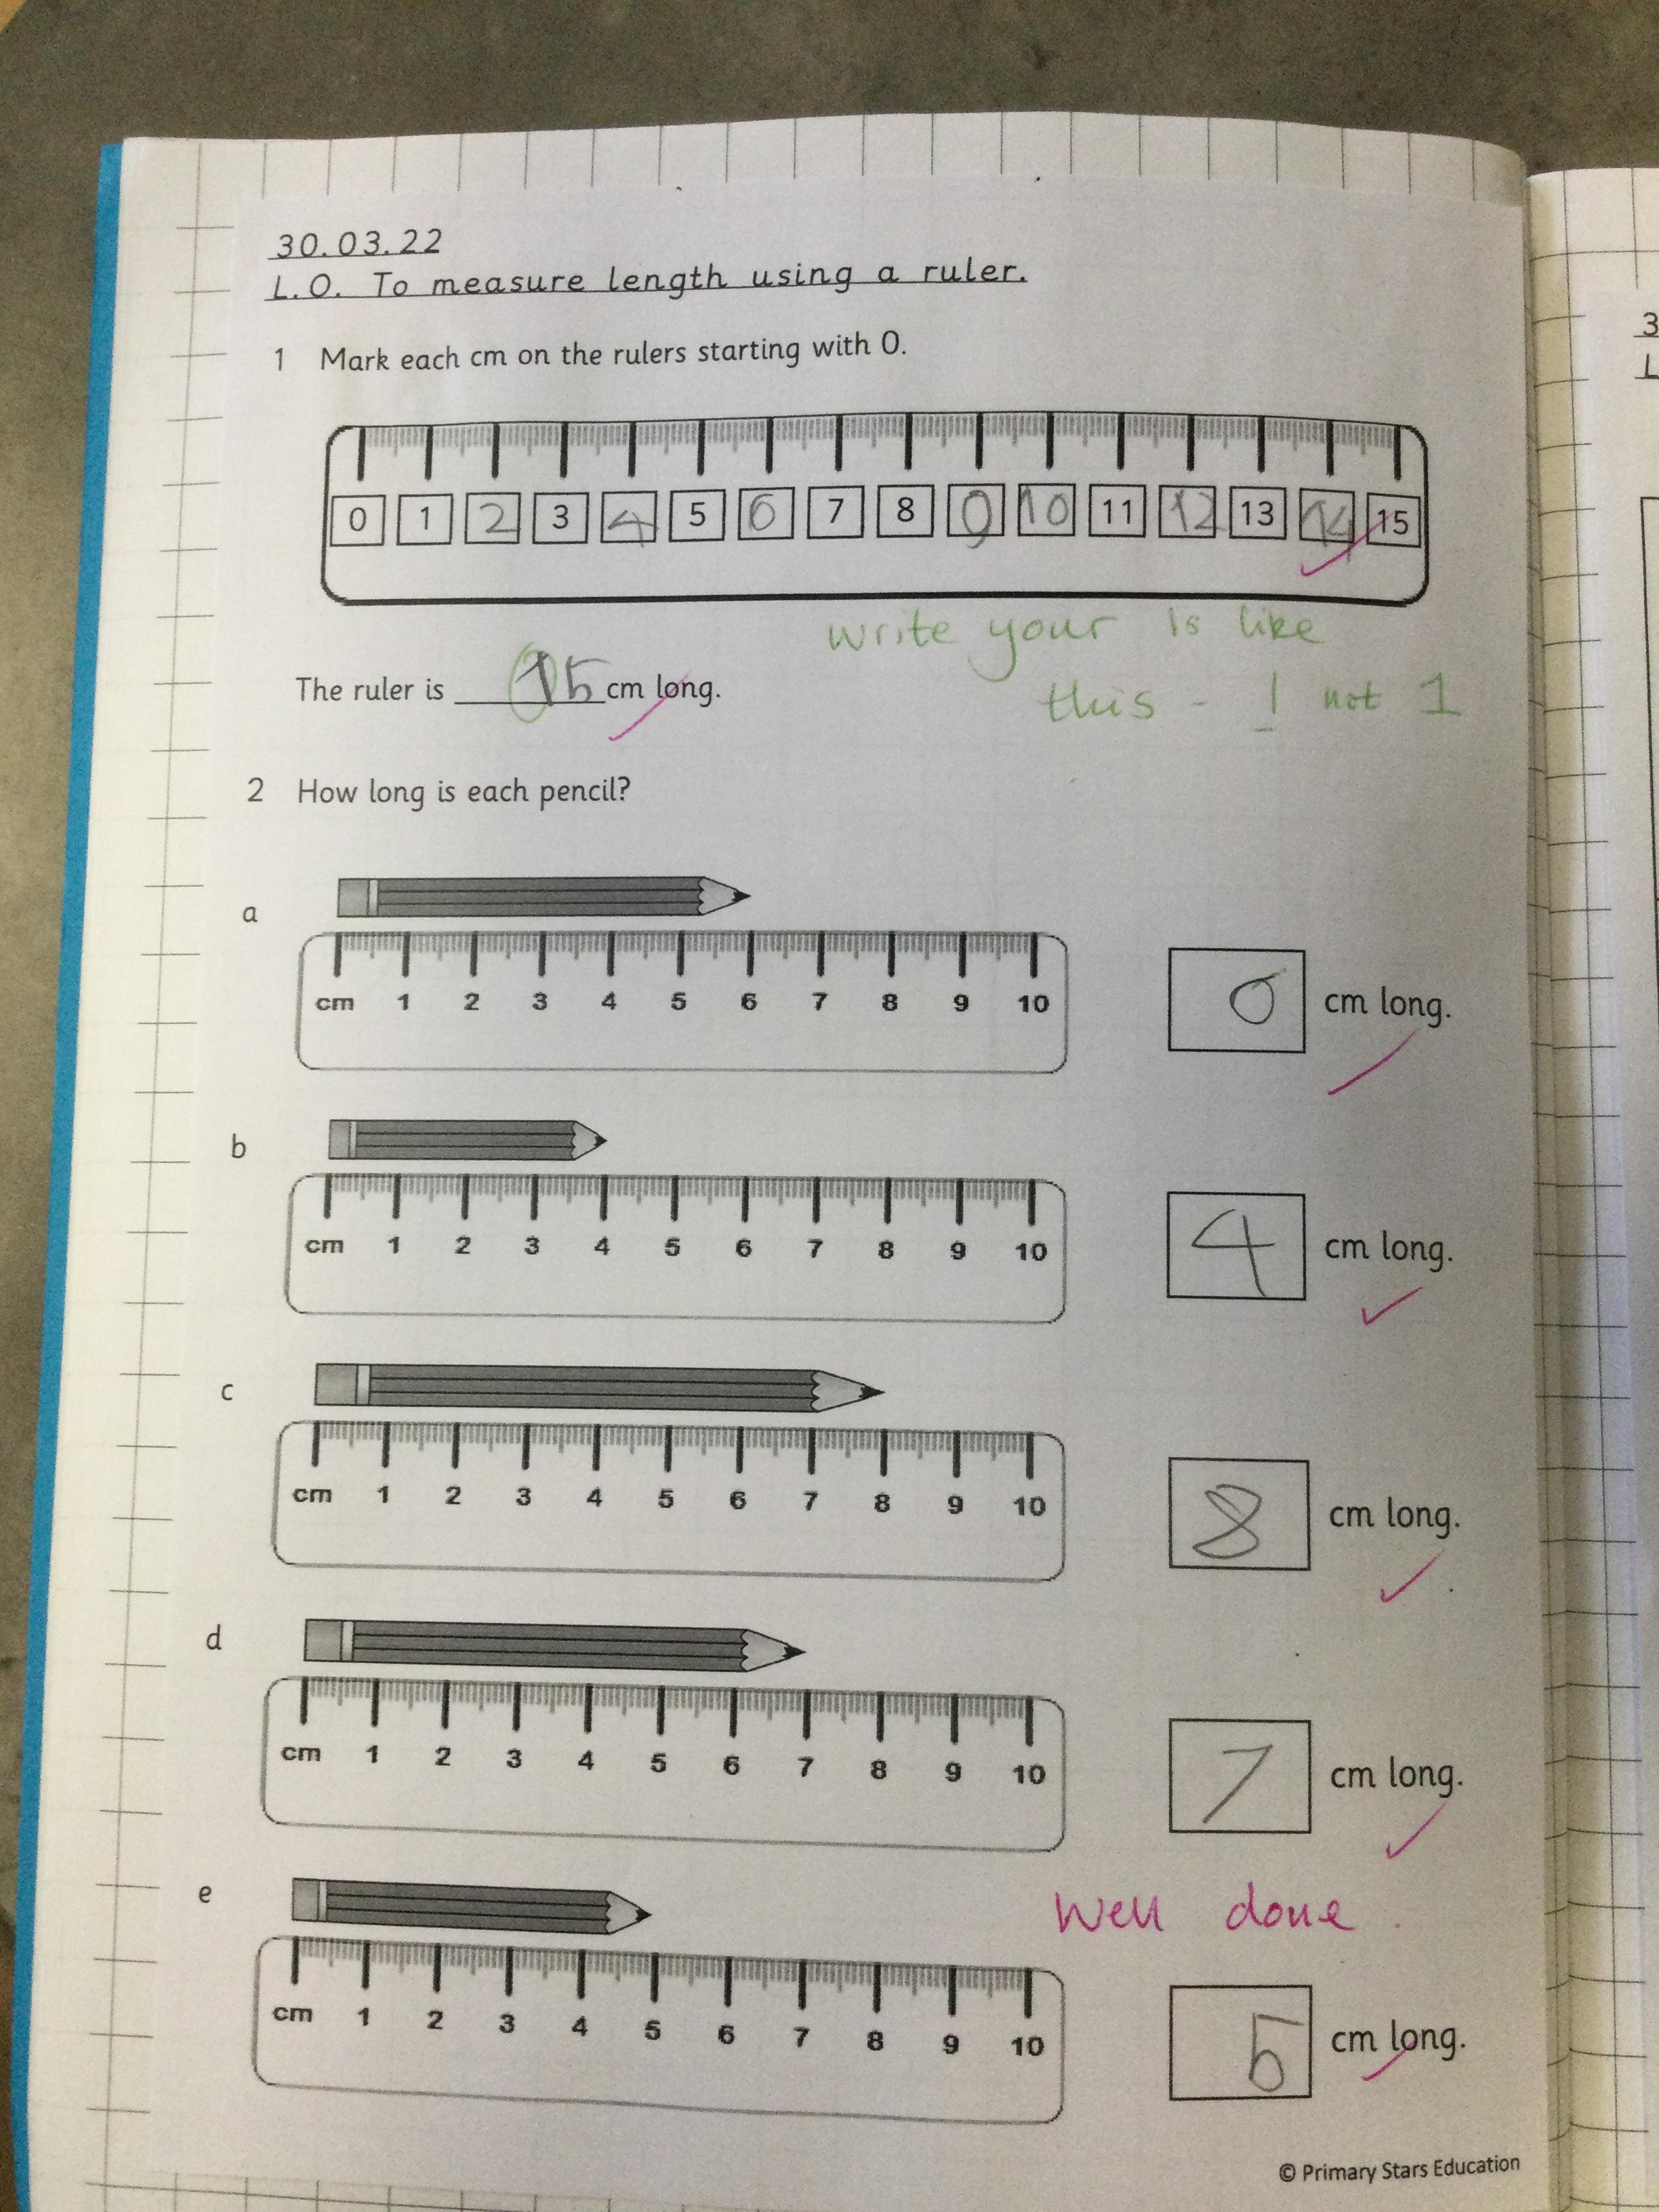 30.03.22
L.O. To measure length using a ruler.
1 Mark each cm on the rulers starting with 0.
0 1 2 3 4 5 6 7 8 9 10 11 12 13 14 15
write your 1s like
this - 1 not 1
The ruler is 15 cm long.
2 How long is each pencil?
a
cm 1 2 3 4 5 6 7 8 9 10
6 cm long.
b
cm 1 2 3 4 5 6 7 8 9 10
4 cm long.
c
cm 1 2 3 4 5 6 7 8 9 10
8 cm long.
d
cm 1 2 3 4 5 6 7 8 9 10
7 cm long.
e
Well done.
cm 1 2 3 4 5 6 7 8 9 10
5 cm long.
© Primary Stars Education
3
L